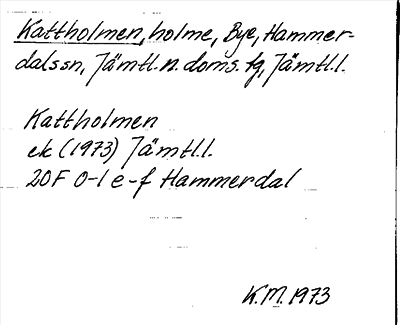 Kattholmen, holme, Bye, Hammer-
dalssn, Jämtl. n. doms. fg, Jämtl. l.
Kattholmen
ek (1973) Jämtl. l.
20F 0-1 e-f Hammerdal
K.M. 1973